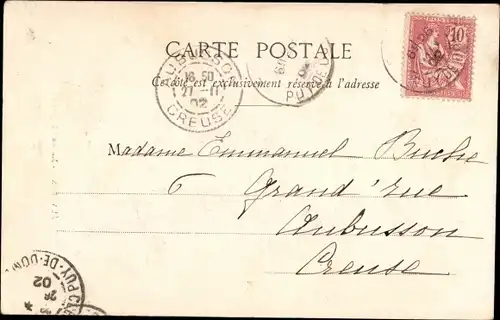 CARTE POSTALE
Ce côté est exclusivement réservé à l'adresse
AUBUSSON
16 50
27 - 11
02
CREUSE
PUY-DE-DOME
02
10
Madame Emmanuel
6 Grand'rue
Aubusson
Creuse